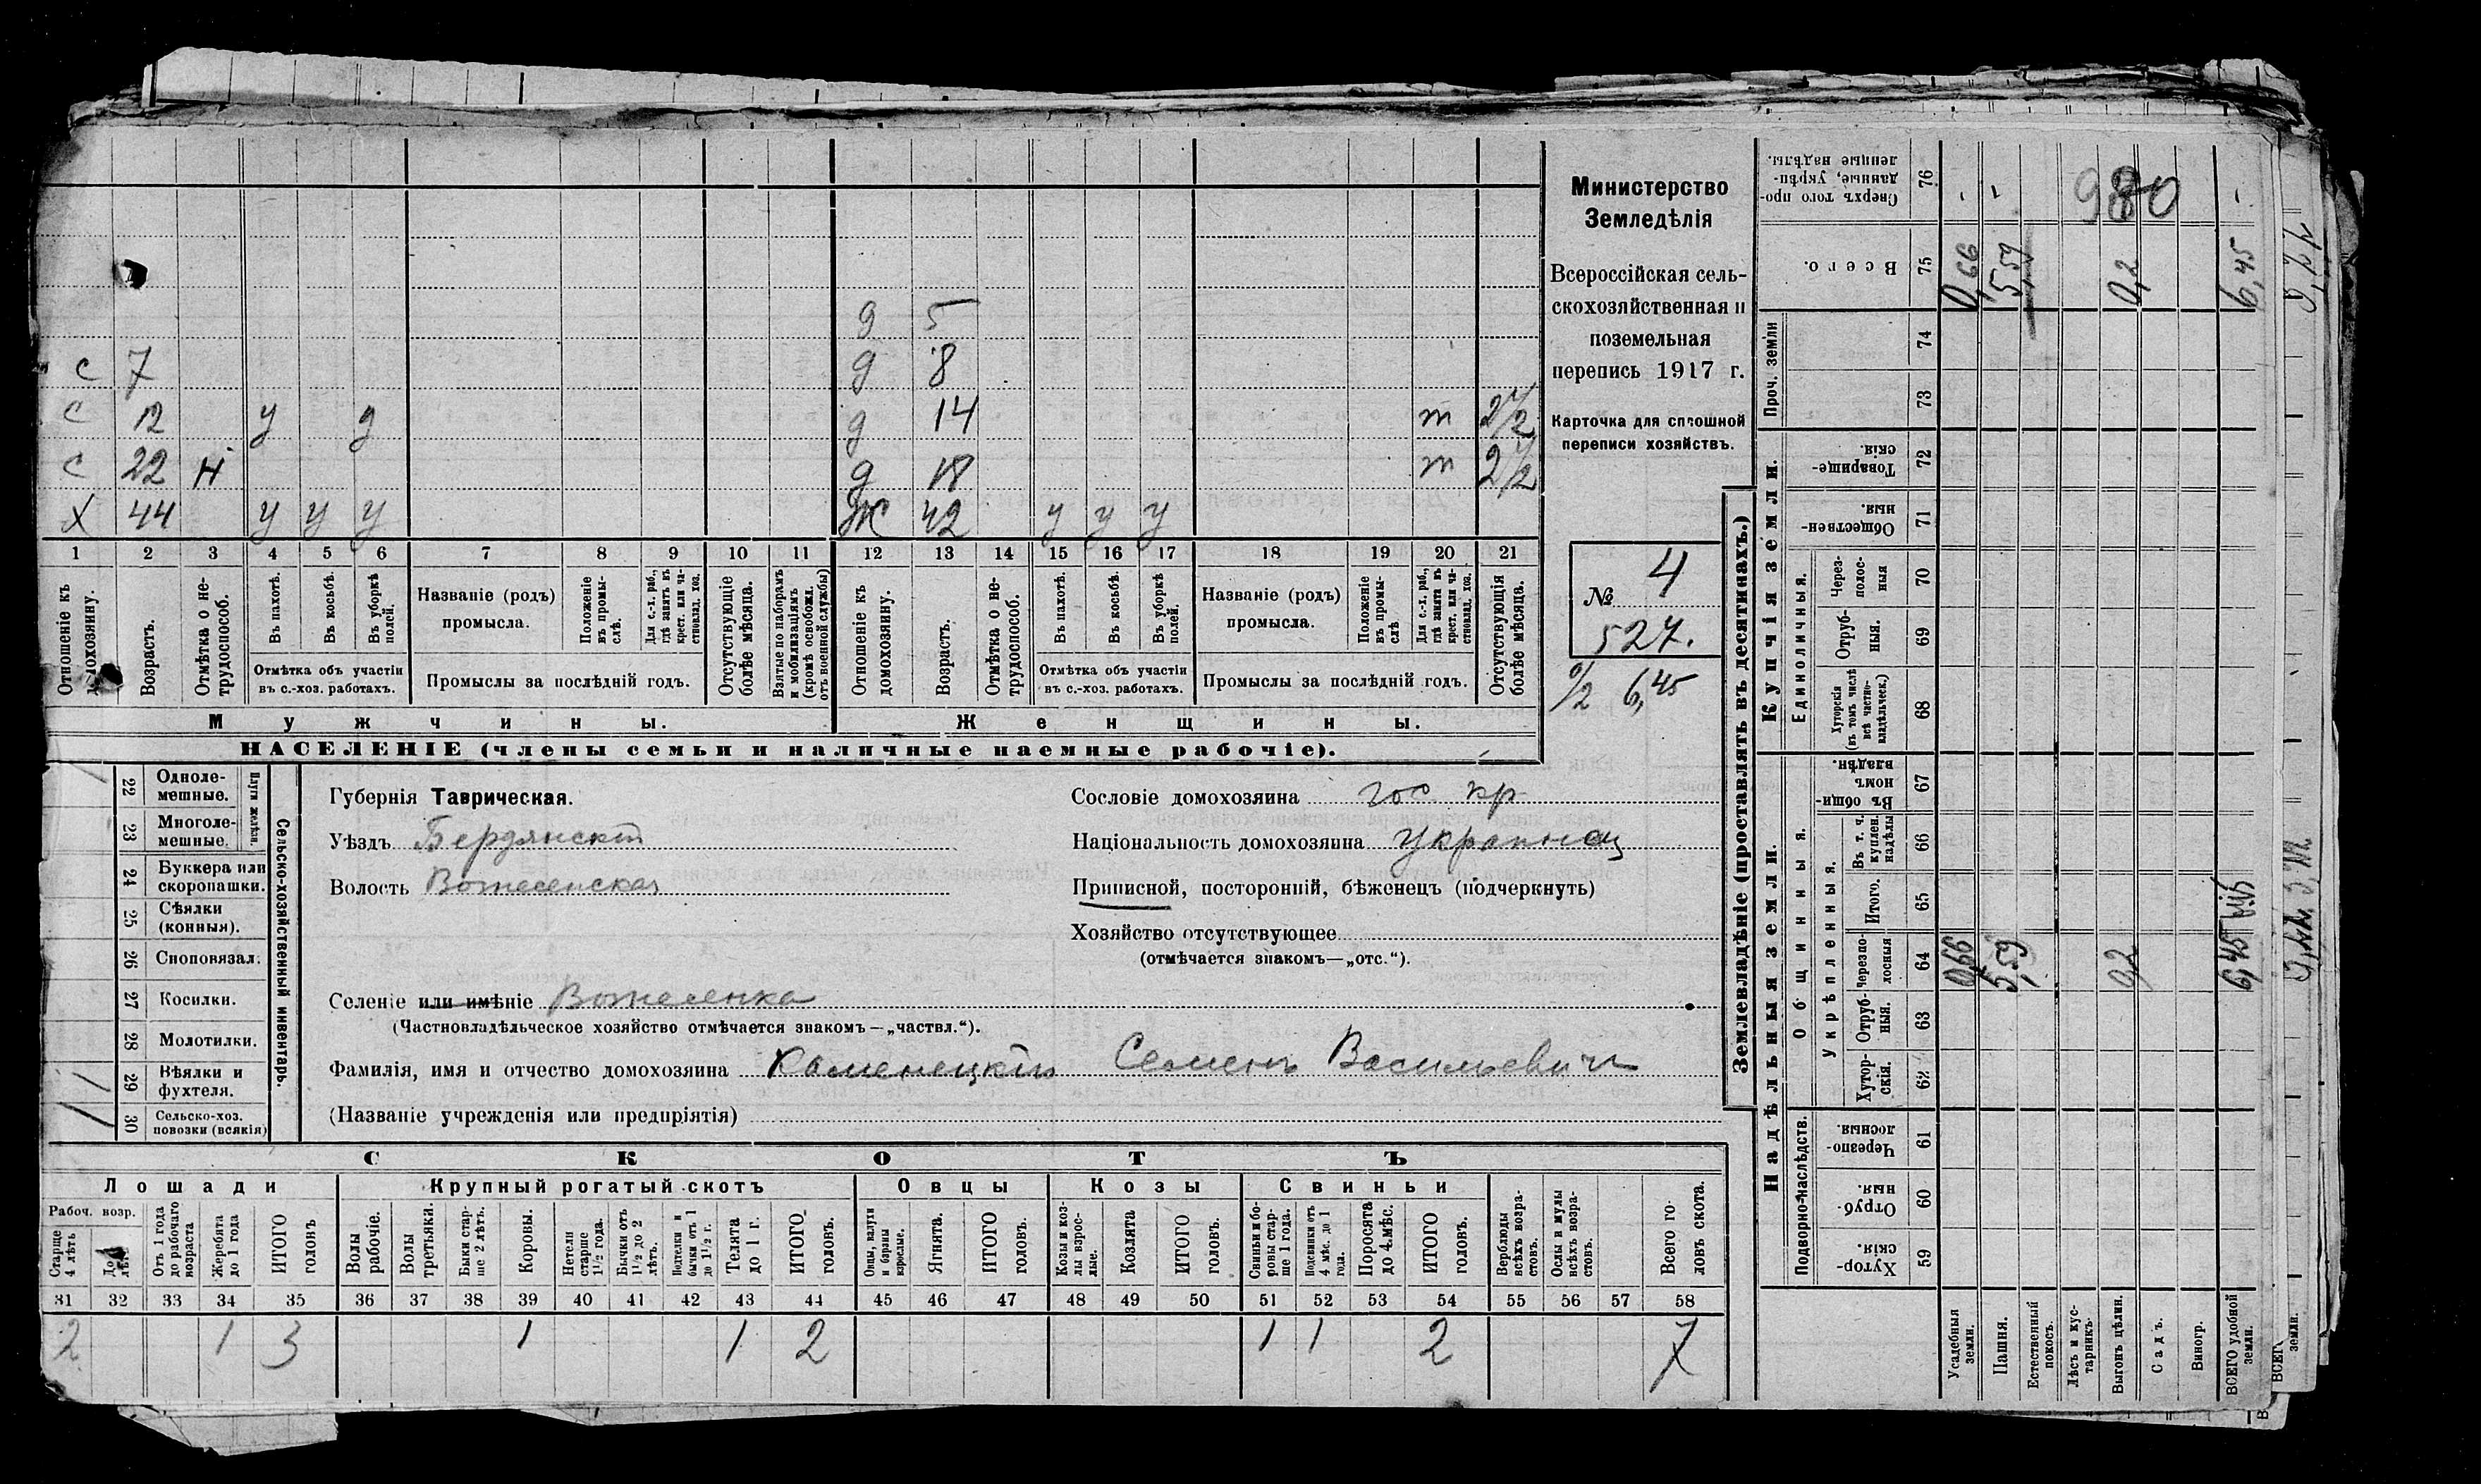 980
Министерство
Земледѣлія
Всероссійская сель-
скохозяйственная и
поземельная
перепись 1917 г.
Карточка для сплошной
переписи хозяйствъ.
№ 4
527.
6,45
д 5
с 7 д 8
с 12 у д д 14 т
с 22 н д 18 т
х 44 у у у ж 42 у у у
1 2 3 4 5 6 7 8 9 10 11 12 13 14 15 16 17 18 19 20 21
Отношеніе къ домохозяину.
Возрастъ.
Отмѣтка о не-
трудоспособ.
Въ пахотѣ.
Въ косьбѣ.
Въ уборкѣ
полей.
Отмѣтка объ участіи
въ с.-хоз. работахъ.
Названіе (родъ)
промысла.
Положеніе
въ промы-
слѣ.
Для с.-х. раб.,
гдѣ занятъ въ
крест. или ча-
стновлад. хоз.
Промыслы за послѣдній годъ.
Отсутствующіе
болѣе мѣсяца.
Взятые по наборамъ
и мобилизаціямъ
(кромѣ освобожд.
отъ военной службы)
Отношеніе къ
домохозяину.
Возрастъ.
Отмѣтка о не-
трудоспособ.
Въ пахотѣ.
Въ косьбѣ.
Въ уборкѣ
полей.
Отмѣтка объ участіи
въ с.-хоз. работахъ.
Названіе (родъ)
промысла.
Положеніе
въ промы-
слѣ
Для с.-х. раб.,
гдѣ занята въ
крест. или ча-
стновлад. хоз.
Промыслы за послѣдній годъ.
Отсутствующія
болѣе мѣсяца.
Мужчины.
Женщины.
НАСЕЛЕНІЕ (члены семьи и наличные наемные рабочіе).
22 Однолe-
мешные.
23 Многоле-
мешные.
Плуги желѣзн.
24 Буккера или
скоропашки.
25 Сѣялки
(конныя).
26 Сноповязал.
27 Косилки.
28 Молотилки.
29 Вѣялки и
фухтеля.
30 Сельско-хоз.
повозки (всякія)
Сельско-хозяйственный инвентарь.
Губернія Таврическая.
Уѣздъ Бердянскій
Волость Вознесенская
Сословіе домохозяина гос. кр
Національность домохозяина украинец
Приписной, посторонній, бѣженецъ (подчеркнуть)
Хозяйство отсутствующее
(отмѣчается знакомъ—„отс.“).
Селеніе или имѣніе Вознесенка
(Частновладѣльческое хозяйство отмѣчается знакомъ—„частвл.“).
Фамилія, имя и отчество домохозяина Каменецкій Семенъ Васильевич
(Названіе учрежденія или предпріятія)
СКОТЪ
Лошади
Крупный рогатый скотъ
Овцы
Козы
Свиньи
Рабоч. возр.
Старше
4 лѣтъ
От 1 года
до рабочаго
возраста
Жеребята
до 1 года
ИТОГО
головъ
Волы
рабочіе.
Волы
третьяки.
Быки стар-
ше 2 лѣтъ.
Коровы.
Нетели
старше
1½ года.
Бычки отъ
1½ до 2
лѣтъ.
Подтелки и
бычки отъ 1
до 1½ г.
Телята
до 1 г.
ИТОГО
головъ.
Овцы, валухи
и бараны
взрослые.
Ягнята.
ИТОГО
головъ.
Козы и коз-
лы взрос-
лые.
Козлята
ИТОГО
головъ.
Свиньи и бо-
ровы стар-
ше 1 года.
Подсвинки отъ
4 мѣс. до 1
года.
Поросята
до 4 мѣс.
ИТОГО
головъ.
Верблюды
всѣхъ возра-
стовъ.
Ослы и мулы
всѣхъ возра-
стовъ.
Всего го-
ловъ скота.
31 32 33 34 35 36 37 38 39 40 41 42 43 44 45 46 47 48 49 50 51 52 53 54 55 56 57 58
2 1 3 1 1 2 1 1 2 7
Землевладѣніе (проставлять въ десятинахъ.)
Купчія земли.
Надѣльныя земли.
Проч. земли
Единоличныя.
Общинныя.
Укрѣпленныя.
Подворно-наслѣдств.
Сверхъ того про-
данные, укрѣп-
ленные надѣлы.
76
Всего.
75
74
73
Товарище-
скія
72
Обществен-
ныя.
71
Через-
полос-
ныя
70
Отруб-
ныя.
69
Хуторскія
(въ томъ числѣ
всѣ частно-
владѣльческ.)
68
Въ общин-
номъ
владѣн.
67
Въ т. ч.
куплен.
надѣлы
66
Итого.
65
Черезпо-
лосныя
64
Отруб-
ныя.
63
Хутор-
скія.
62
Черезпо-
лосныя.
61
Отруб-
ныя.
60
Хутор-
скія.
59
0,66 5,59 0,2 6,45
0,66 5,59 0,2 6,45
Усадебныя
земли.
Пашня.
Естественный
покосъ.
Лѣсъ и кус-
тарникъ.
Выгонъ цѣлин.
Садъ.
Виногр.
ВСЕГО удобной
земли.
земли.